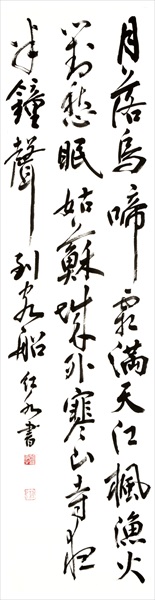 月落烏啼霜満天江楓漁火
對愁眠姑蘇城外寒山寺夜
半鐘聲到客船 書